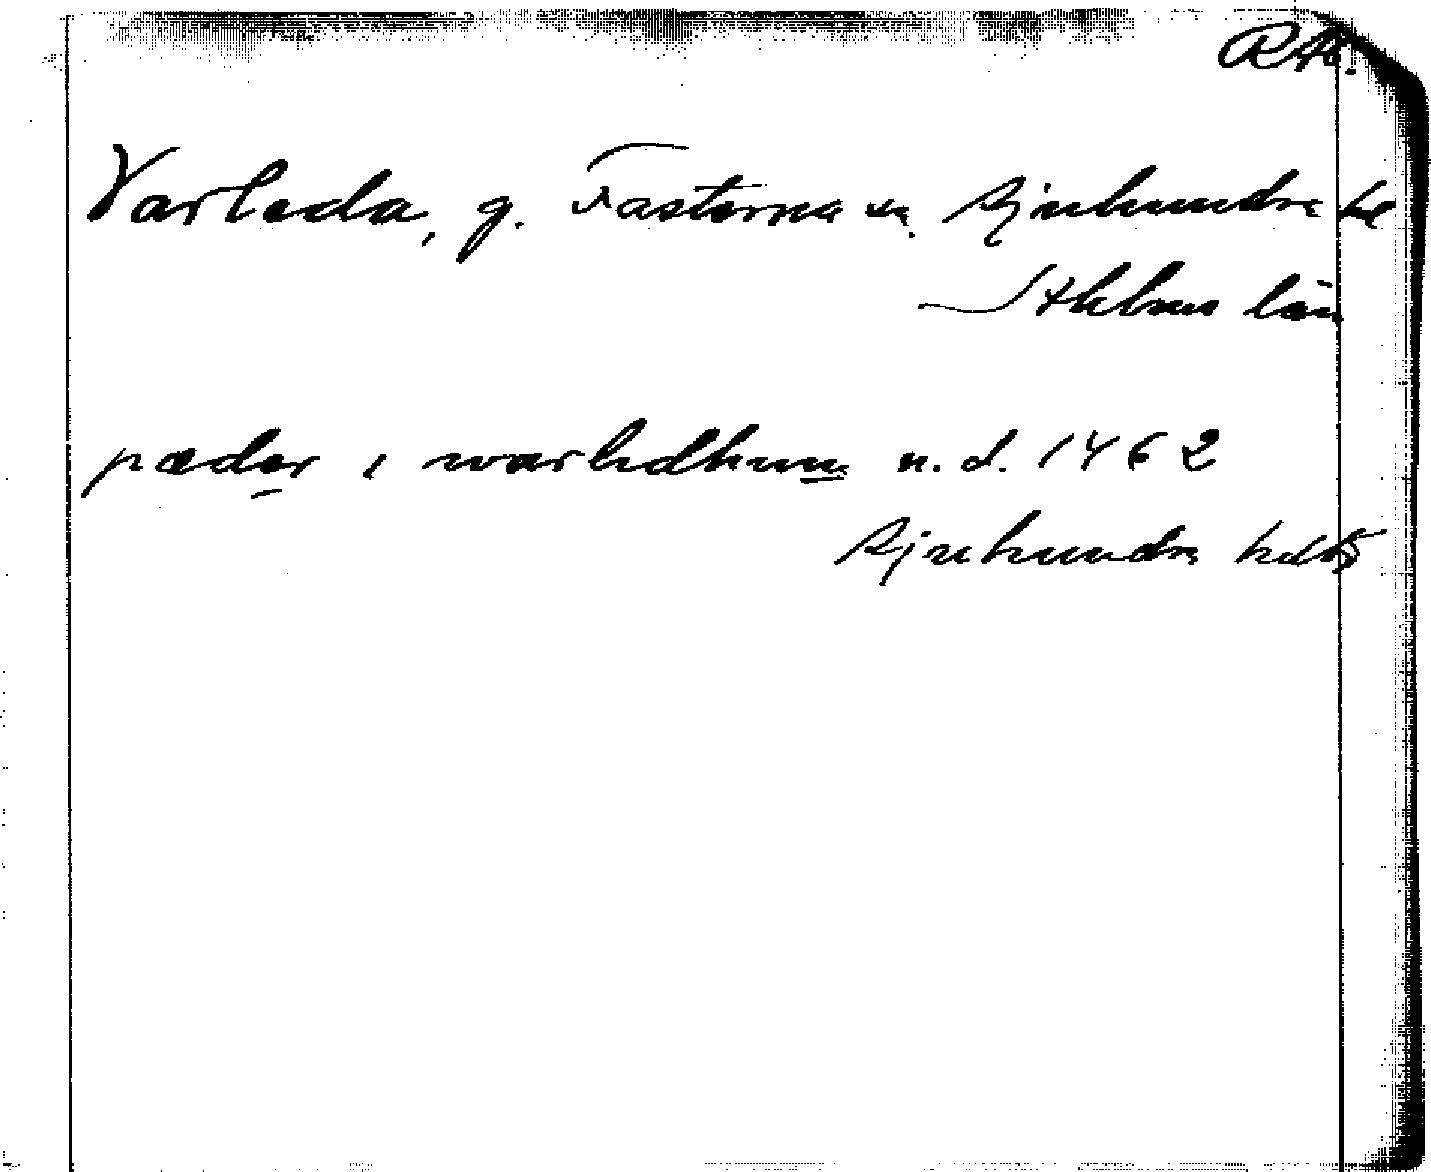 RA.
Varleda, g. Fasterna sn. Sjuhundra hd
Sthlms län
pæder i warledhum n. d. 1462
Sjuhundra hdsb